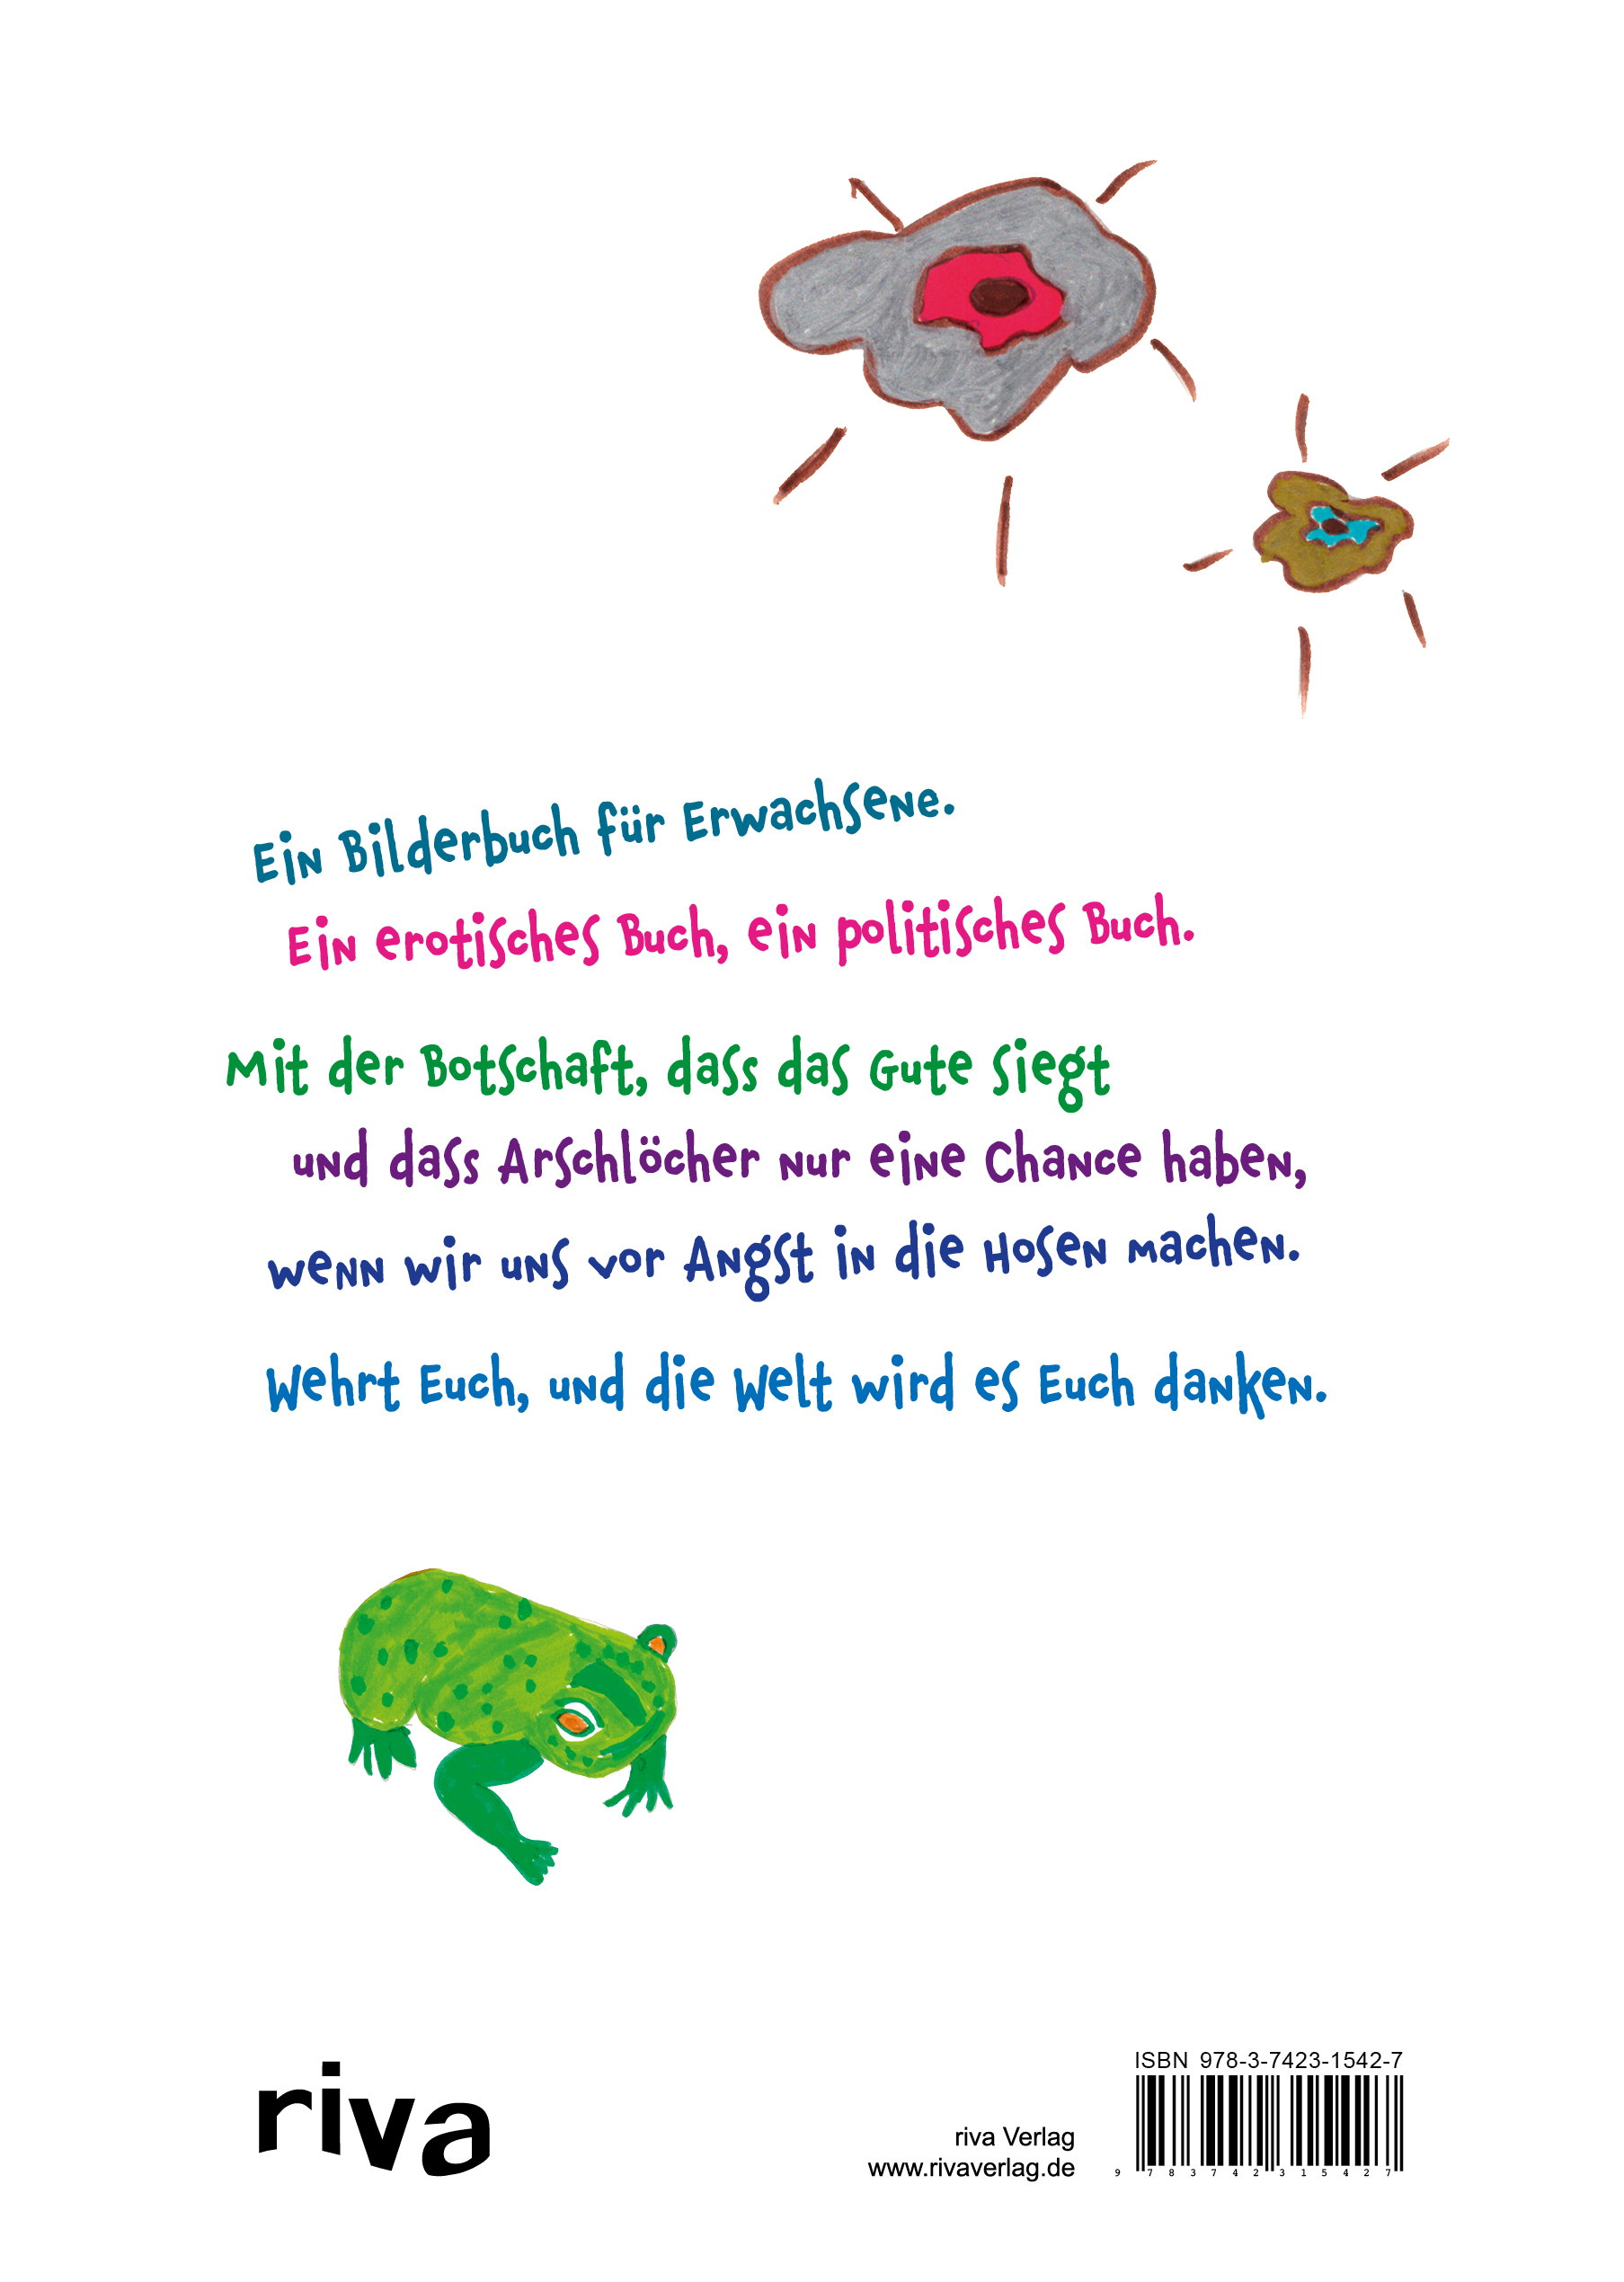 Ein Bilderbuch für Erwachsene.
Ein erotisches Buch, ein politisches Buch.
Mit der Botschaft, dass das Gute siegt
und dass Arschlöcher nur eine Chance haben,
wenn wir uns vor Angst in die Hosen machen.
Wehrt Euch, und die Welt wird es Euch danken.
riva
riva Verlag
www.rivaverlag.de
ISBN 978-3-7423-1542-7
9 783742 315427